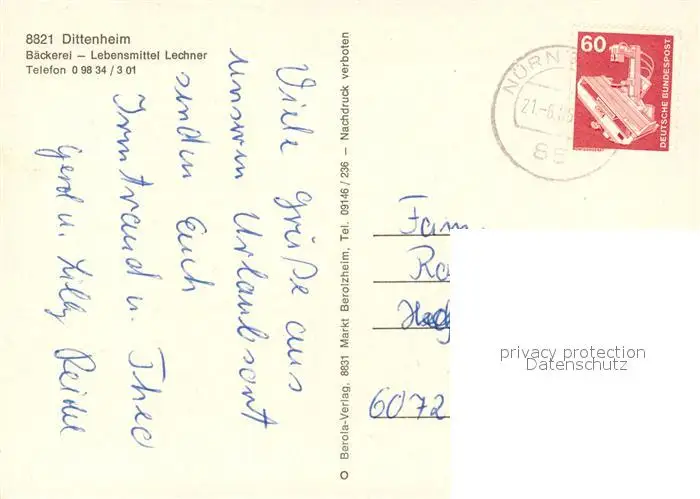 8821 Dittenheim
Bäckerei – Lebensmittel Lechner
Telefon 0 98 34 / 3 01
Viele Grüße aus
unserm Urlaubsort
senden Euch
Irmtraud u. Theo
Gerd u. Lilly Reidel
Berola-Verlag, 8831 Markt Berolzheim, Tel. 09146 / 236 – Nachdruck verboten
60
DEUTSCHE BUNDESPOST
NÜRN
21.-6.
Fam.
Ro
6072
privacy protection
Datenschutz